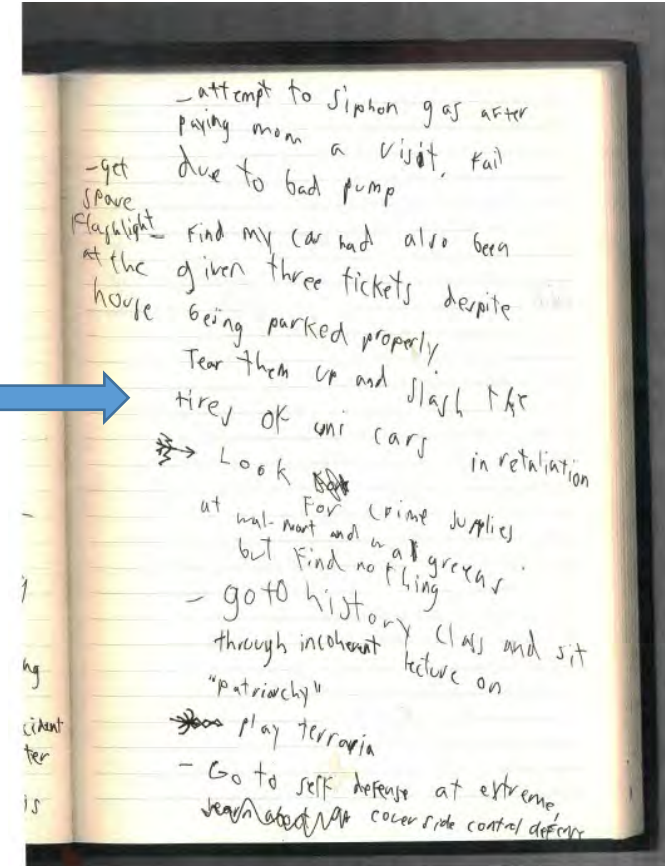 - attempt to siphon gas after
paying mom a visit, fail
due to bad pump
- get
spare
flashlight
at the
house
- Find my car had also been
given three tickets despite
being parked properly.
Tear them up and slash the
tires of uni cars
in retaliation
Look
For crime supplies
at wal-mart and walgreens
but find nothing
- go to history class and sit
through incoherent lecture on
"patriarchy"
play terraria
- Go to self defense at extreme,
cover side control defense
ng
cident
ter
is